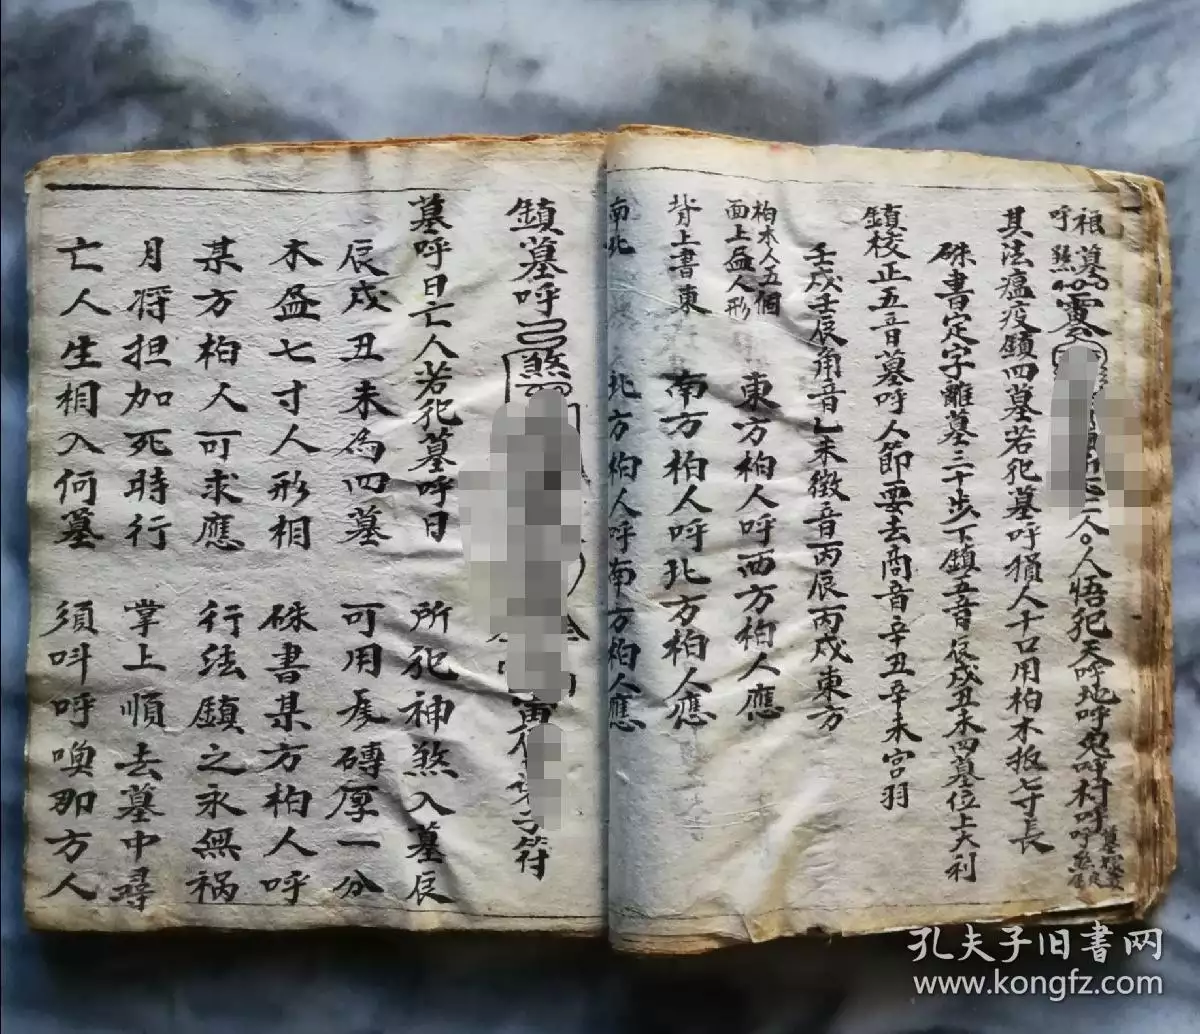 祖墓
呼煞
人悟犯天呼地呼鬼呼村呼
其法瘟疫鎮四墓若犯墓呼損人十口用柏木板七寸長
硃書定字離墓三十步下鎮五音辰戌丑未四墓位上大利
鎮校正五音墓呼人節要去商音辛丑辛未宮羽
壬戌壬辰角音乙未徵音丙辰丙戌東方
柏木人五個
面上畫人形
東方柏人呼西方柏人應
背上書東
南方柏人呼北方柏人應
南北
北方柏人呼南方柏人應
鎮墓呼
煞
符
墓呼日亡人若犯墓呼日 所犯神煞入墓辰
辰戌丑未為四墓 可用磚厚一分
木畫七寸人形相 硃書某方柏人呼
某方柏人可求應 行法鎮之永無禍
月将担加死時行 掌上順去墓中尋
亡人生相入何墓 須呌呼喚那方人
孔夫子旧書网
www.kongfz.com